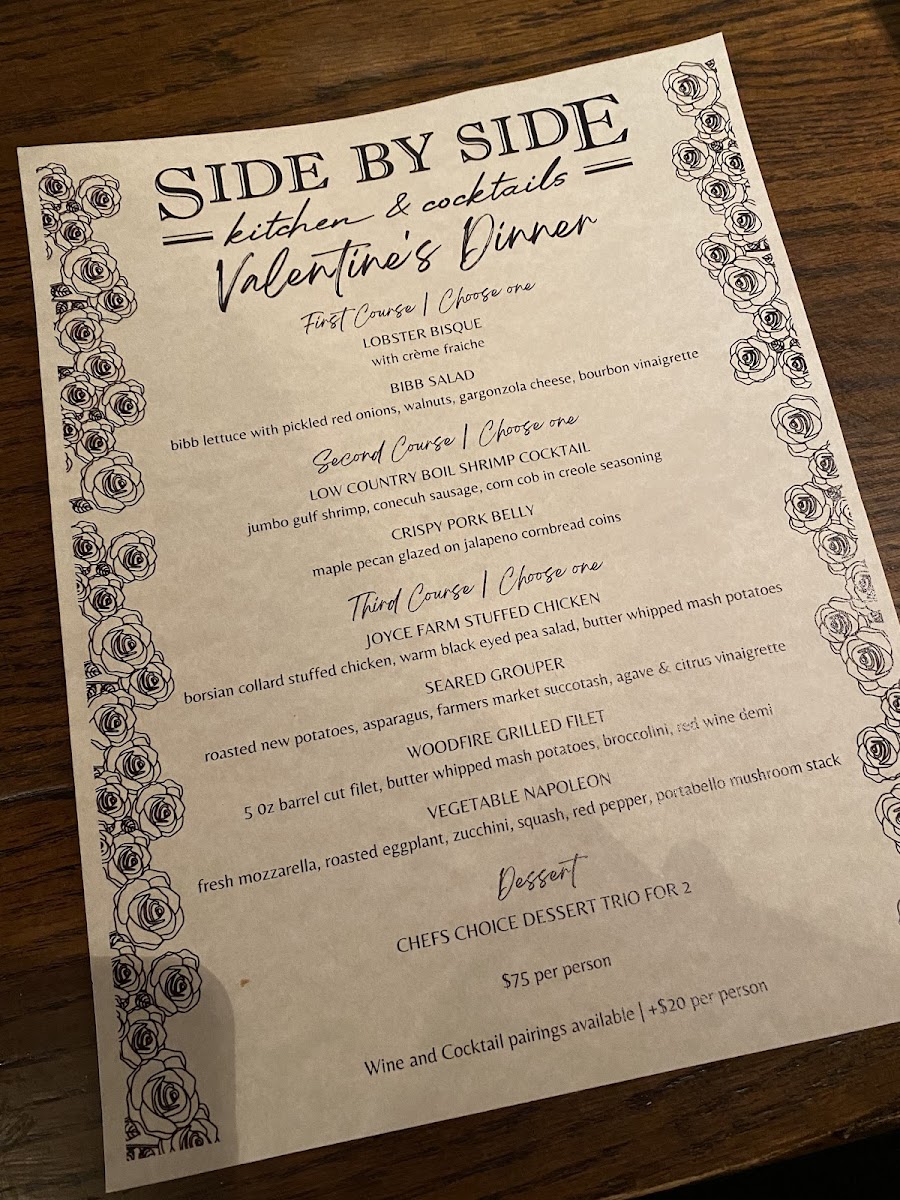 SIDE BY SIDE
kitchen & cocktails
Valentine's Dinner
First Course | Choose one
LOBSTER BISQUE
with crème fraiche
BIBB SALAD
bibb lettuce with pickled red onions, walnuts, gargonzola cheese, bourbon vinaigrette
Second Course | Choose one
LOW COUNTRY BOIL SHRIMP COCKTAIL
jumbo gulf shrimp, conecuh sausage, corn cob in creole seasoning
CRISPY PORK BELLY
maple pecan glazed on jalapeno cornbread coins
Third Course | Choose one
JOYCE FARM STUFFED CHICKEN
borsian collard stuffed chicken, warm black eyed pea salad, butter whipped mash potatoes
SEARED GROUPER
roasted new potatoes, asparagus, farmers market succotash, agave & citrus vinaigrette
WOODFIRE GRILLED FILET
5 oz barrel cut filet, butter whipped mash potatoes, broccolini, red wine demi
VEGETABLE NAPOLEON
fresh mozzarella, roasted eggplant, zucchini, squash, red pepper, portabello mushroom stack
Dessert
CHEFS CHOICE DESSERT TRIO FOR 2
$75 per person
Wine and Cocktail pairings available | +$20 per person